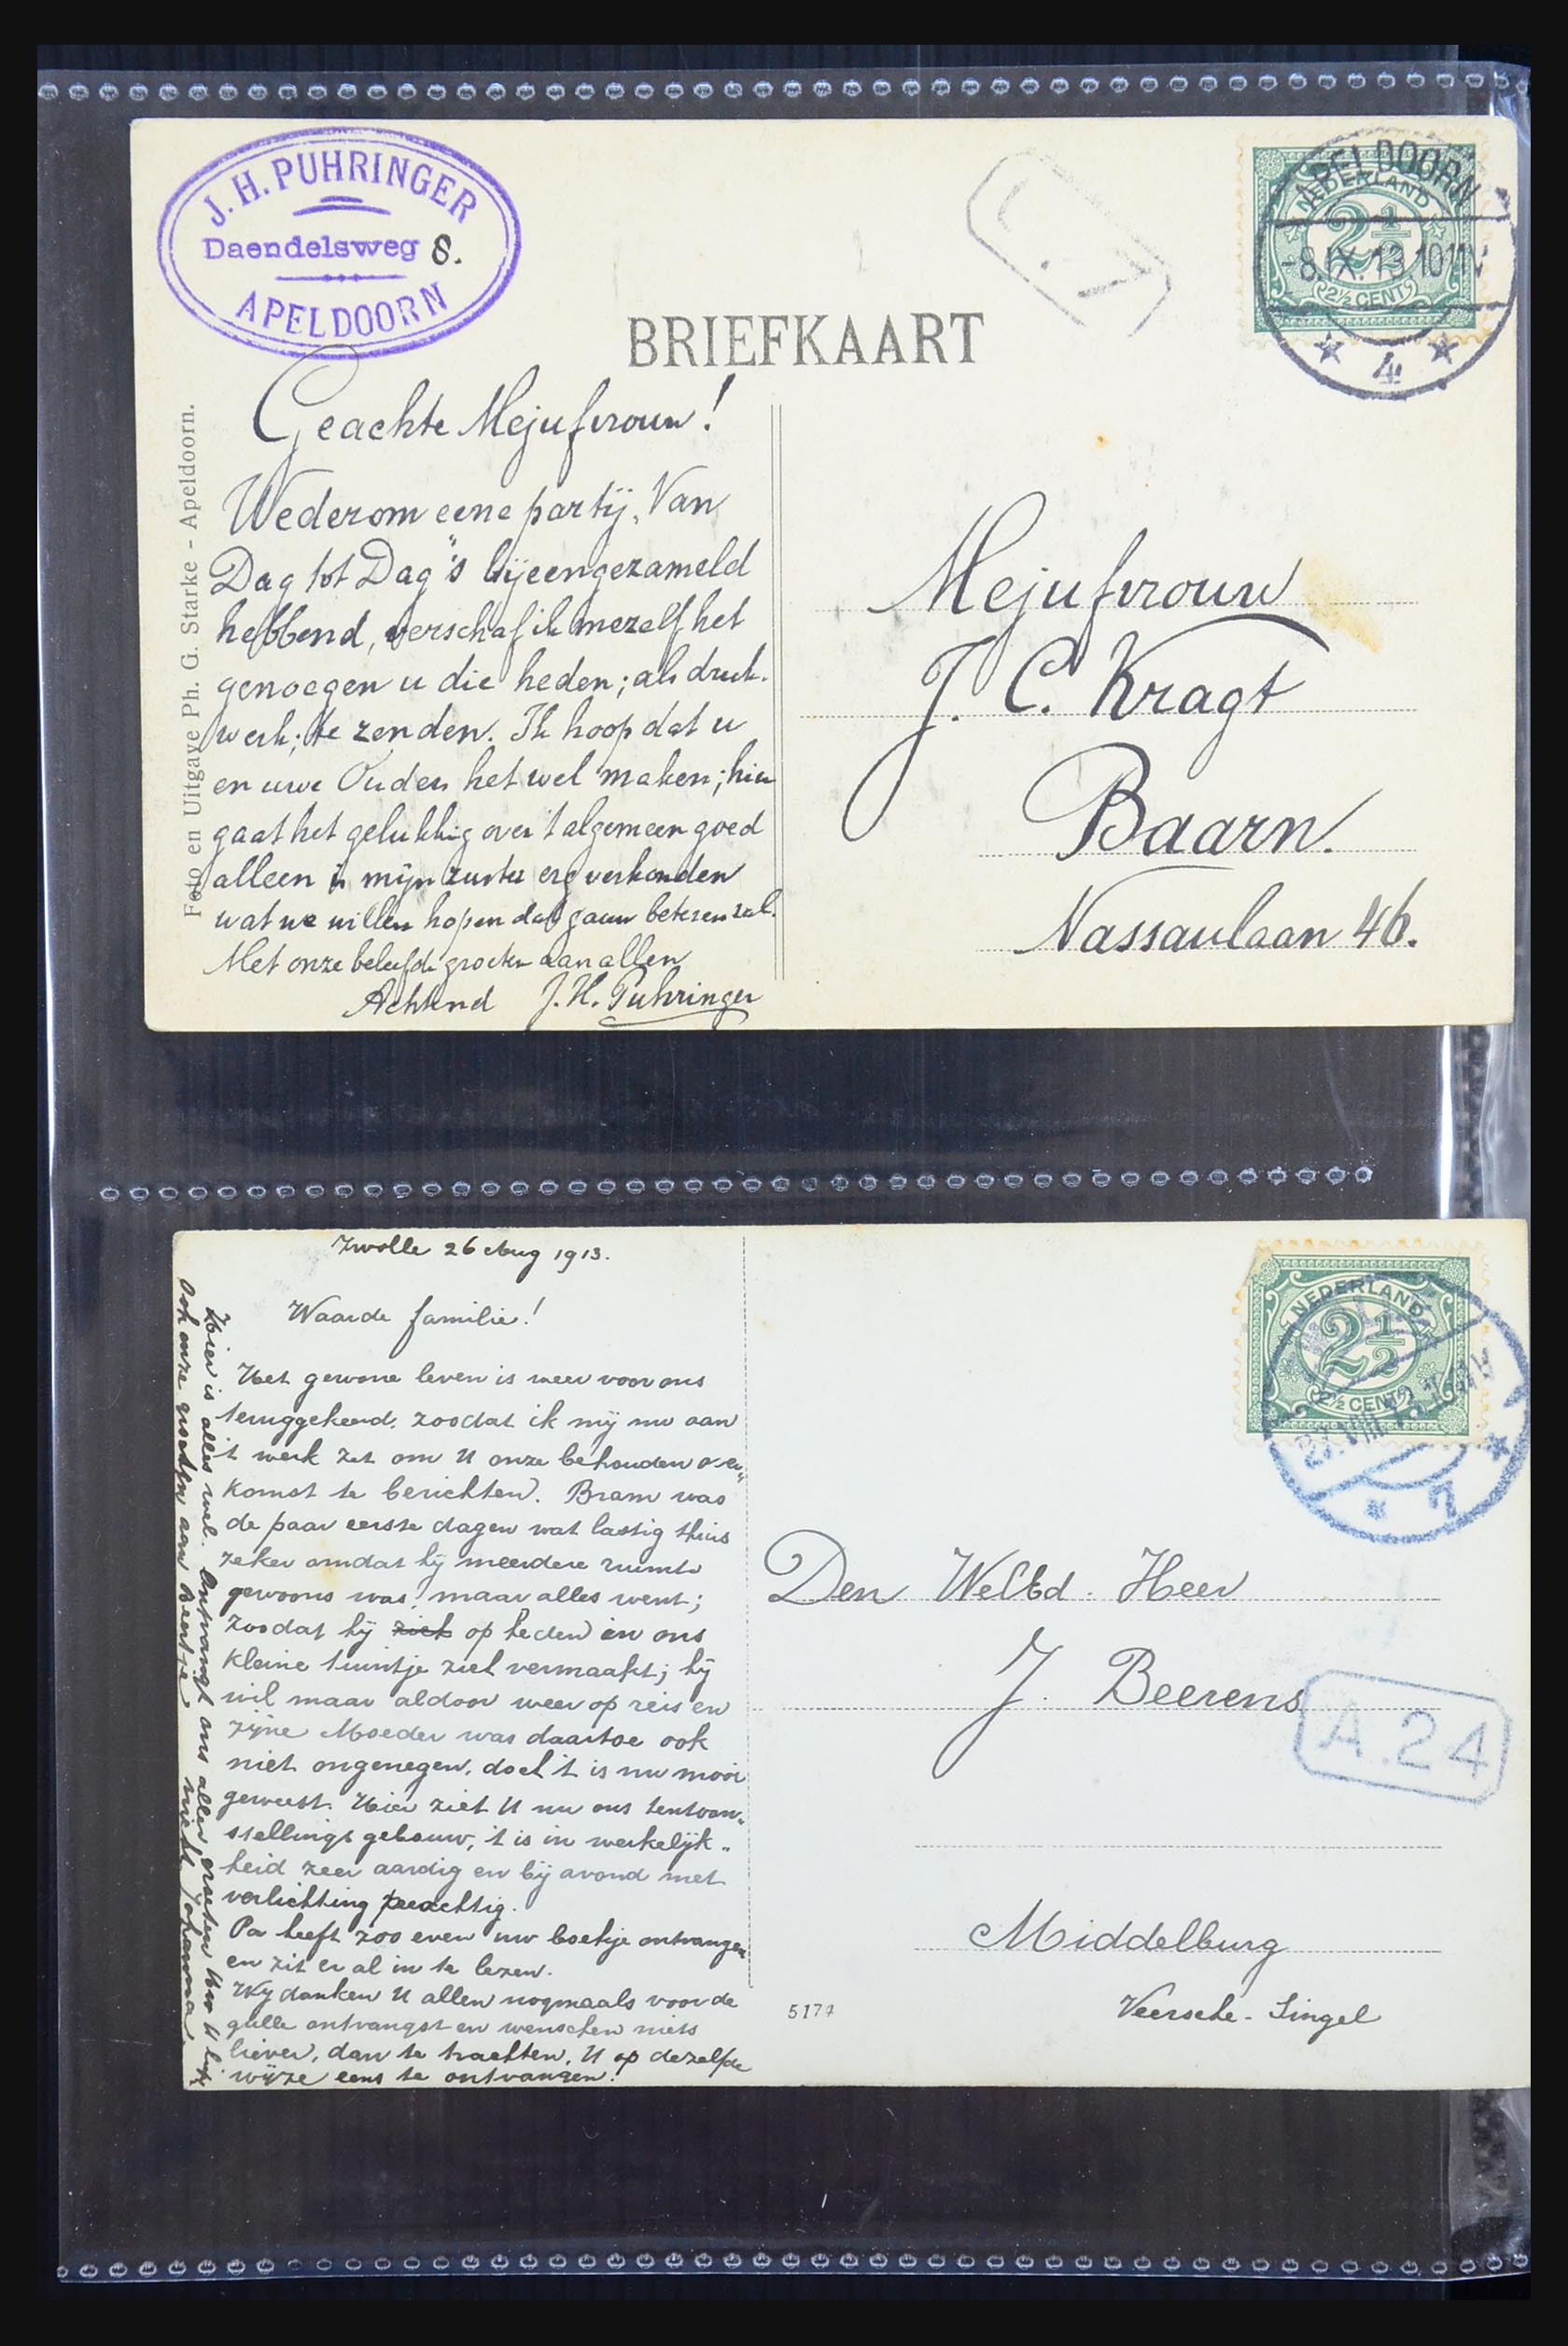 J. H. PUHRINGER
Daendelsweg 8.
APELDOORN
BRIEFKAART
NEDERLAND
2½
2½ CENT
APELDOORN
-8.IX.13.1011V
4
Foto en Uitgave Ph. G. Starke - Apeldoorn.
Geachte Mejufvrouw!
Wederom eene partij „Van
Dag tot Dag"'s bijeengezameld
hebbend, verschaf ik mezelf het
genoegen u die heden; als druk-
werk; te zenden. Ik hoop dat u
en uwe Ouders het wel maken; hier
gaat het gelukkig over 't algemeen goed
alleen is mijn zuster erg verkouden
wat we willen hopen dat gauw beteren zal.
Met onze beleefde groeten aan allen
Achtend J. H. Puhringer
Mejufvrouw
J. C. Kragt
Baarn.
Nassaulaan 46.
Zwolle 26 Aug 1913.
Waarde familie!
Het gewone leven is weer voor ons
teruggekeerd, zoodat ik mij nu aan
't werk zet om U onze behouden over-
komst te berichten. Bram was
de paar eerste dagen wat lastig thuis
zeker omdat hij meerdere ruimte
gewoons was, maar alles went;
zoodat hij zich op heden in ons
kleine tuintje ziet vermaakt; hij
wil maar aldoor weer op reis en
zijne Moeder was daartoe ook
niet ongenegen, doch 't is nu mooi
geweest. Hier ziet U nu ons tentoon-
stellings gebouw, 't is in werkelijk-
heid zeer aardig en bij avond met
verlichting prachtig.
Pa heeft zoo even uw boekje ontvangen
en zit er al in te lezen.
Wij danken U allen nogmaals voor de
gulle ontvangst en wenschen niets
liever, dan te trachten, U op dezelfde
wijze eens te ontvangen!
Hier is alles wel. Ontvangt ons aller groeten
Ook onze groeten aan Beertje
nicht Johanna
NEDERLAND
2½
2½ CENT
7
Den WelEd. Heer
J. Beerens
A.24
Middelburg
Veersche-Singel
5177